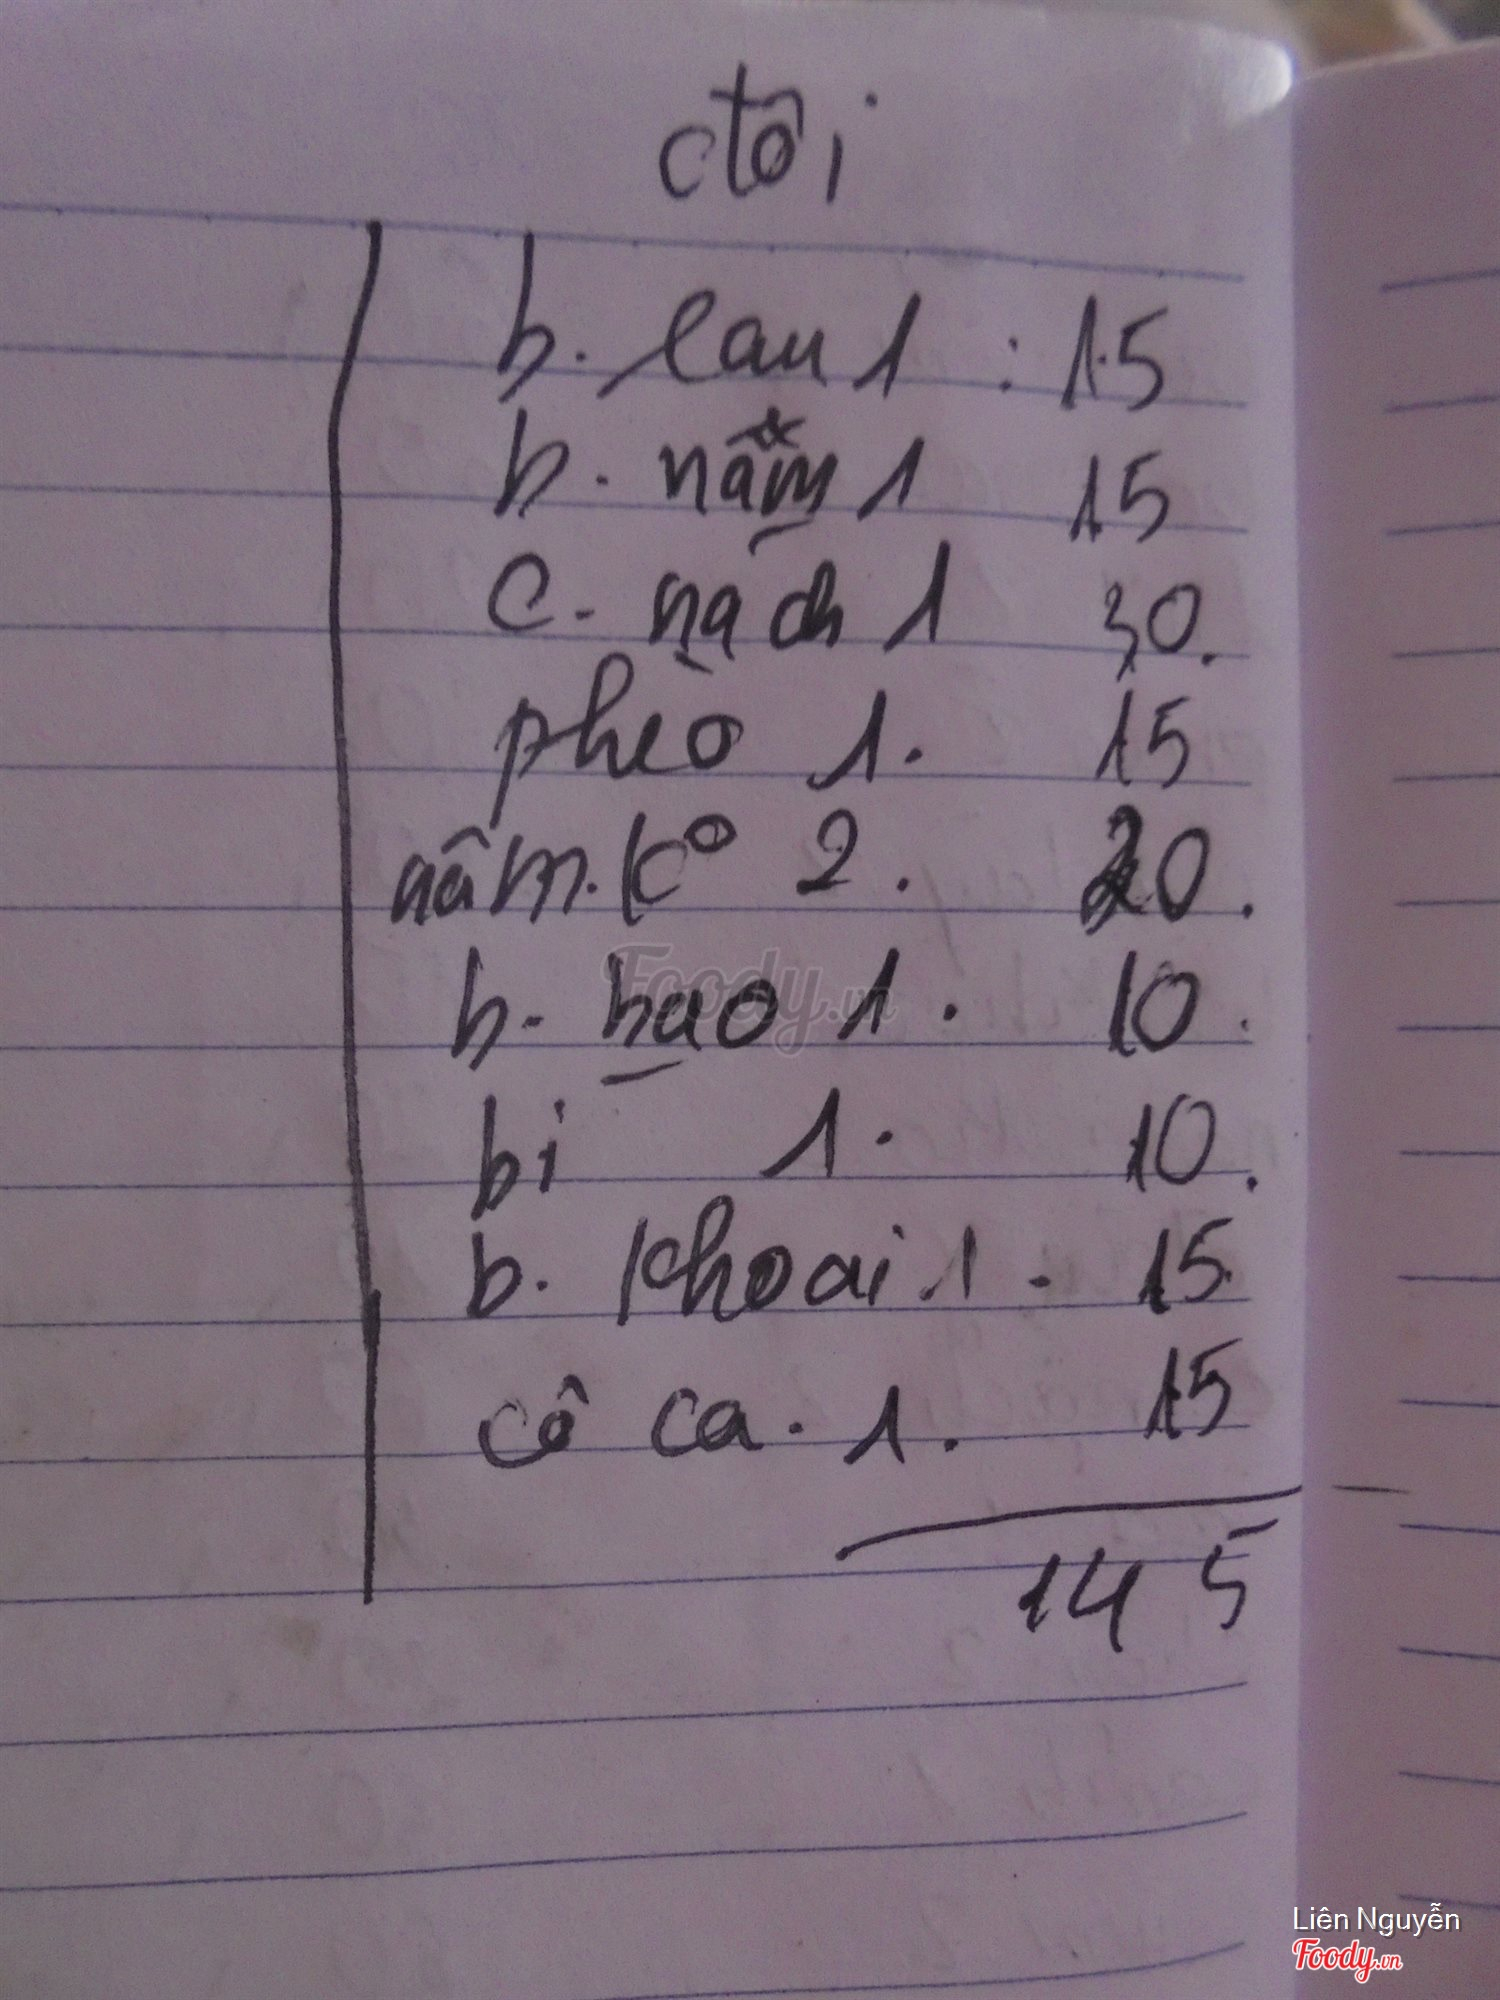 tôi
b. lau 1 : 15
b. nấm 1 15
c. nách 1 30.
phèo 1. 15
nấm. kº 2. 20.
b. bao 1. 10.
bi 1. 10.
b. khoai 1. 15
cô ca. 1. 15
145
Foody.vn
Liên Nguyễn
Foody.vn